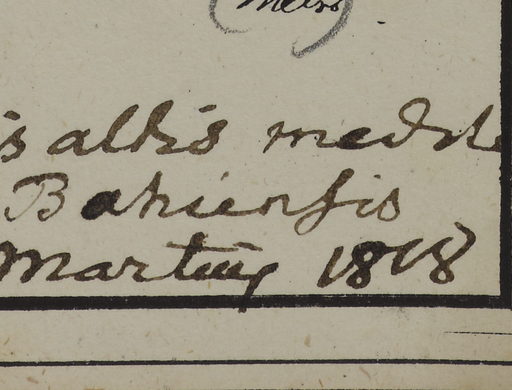 Meiss)
is altis medite
Bahiensis
Martius 1818